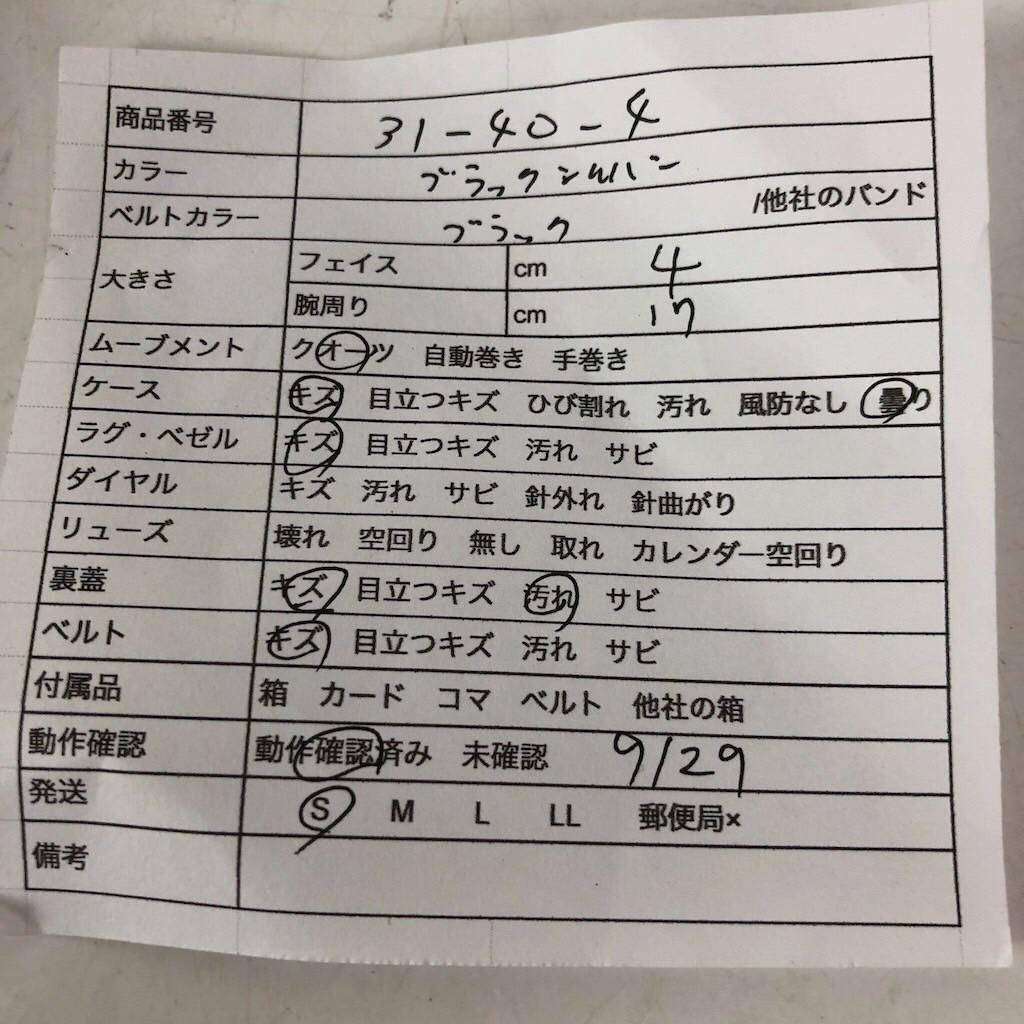 商品番号 31-40-4
カラー ブラックシルバー
ベルトカラー ブラック /他社のバンド
大きさ フェイス cm 4
腕周り cm 17
ムーブメント クオーツ 自動巻き 手巻き
ケース キズ 目立つキズ ひび割れ 汚れ 風防なし 曇り
ラグ・ベゼル キズ 目立つキズ 汚れ サビ
ダイヤル キズ 汚れ サビ 針外れ 針曲がり
リューズ 壊れ 空回り 無し 取れ カレンダー空回り
裏蓋 キズ 目立つキズ 汚れ サビ
ベルト キズ 目立つキズ 汚れ サビ
付属品 箱 カード コマ ベルト 他社の箱
動作確認 動作確認済み 未確認 9/29
発送 S M L LL 郵便局×
備考